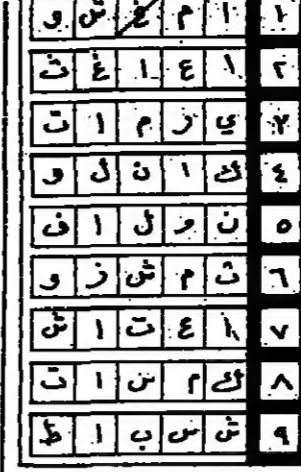 ١ ا م غ ش و
٢ ا ع ا غ ث
٣ ي ز م ا ت
٤ ك ا ن ل و
٥ ن و ل ا ف
٦ ت م ش ز و
٧ ا ع ت ا ش
٨ ك م ن ا ت
٩ ش س ب ا ط